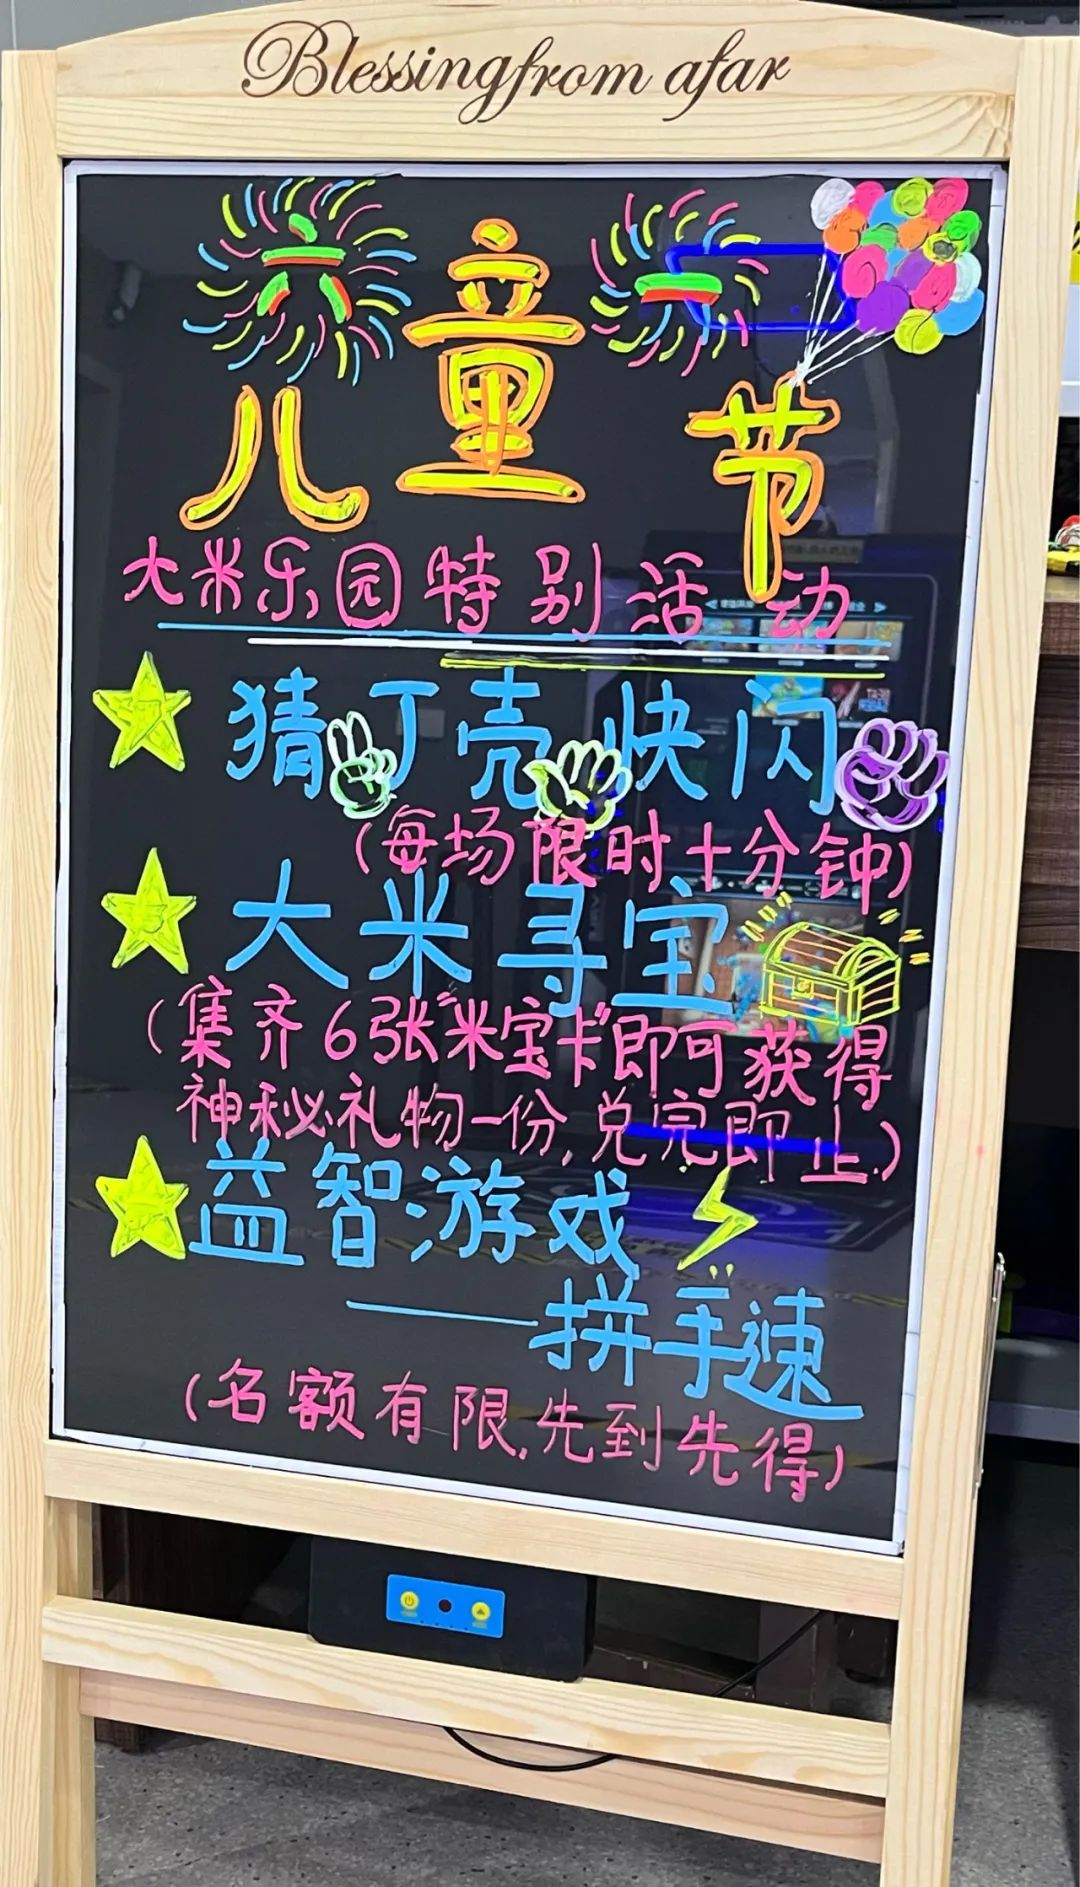 Blessing from afar
六一
儿童节
大米乐园特别活动
猜丁壳快闪
(每场限时十分钟)
大米寻宝
(集齐6张"米宝卡"即可获得
神秘礼物一份,兑完即止.)
益智游戏
——拼手速
(名额有限,先到先得)